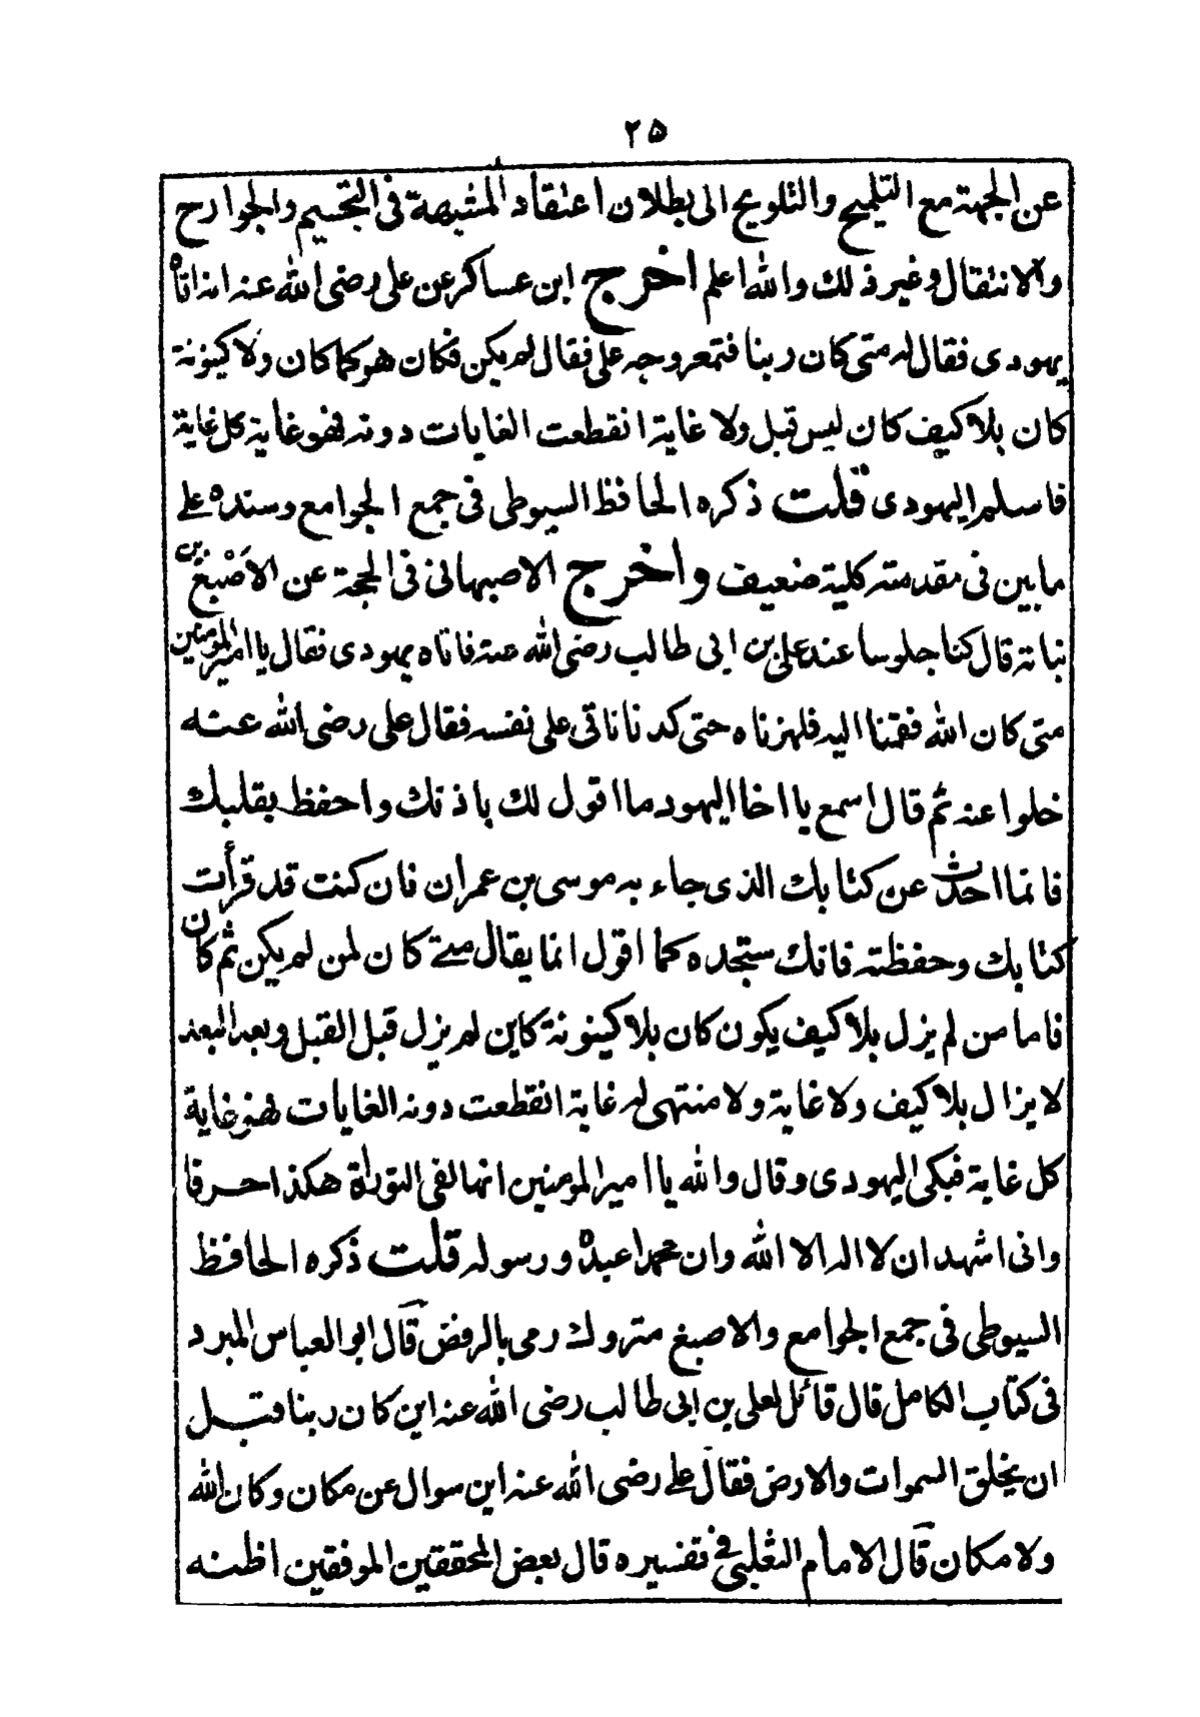 ٢٥
عن الجهة مع التلميح والتلويح الى بطلان اعتقاد المشبهة فى التجسيم والجوارح
والانتقال وغير ذلك والله اعلم اخرج ابن عساكر عن على رضى الله عنه انه اتاه
يهودى فقال له متى كان ربنا فتمعر وجه على فقال لم يكن فكان هو كما كان ولا كينونة
كان بلا كيف كان ليس قبل ولا غاية انقطعت الغايات دونه فهو غاية كل غاية
فاسلم اليهودى قلت ذكره الحافظ السيوطى فى جمع الجوامع وسنده على
ما بين فى مقدمته كلية ضعيف واخرج الاصبهانى فى الحجة عن الاَصْبغ بن
نباتة قال كنا جلوسا عند على بن ابى طالب رضى الله عنه فاتاه يهودى فقال يا امير المومنين
متى كان الله فقمنا اليه فلهزناه حتى كدنا ناتى على نفسه فقال على رضى الله عنه
خلوا عنه ثم قال اسمع يا اخا اليهود ما اقول لك باذنك واحفظ بقلبك
فانما احدث عن كتابك الذى جاء به موسى بن عمران فان كنت قد قرأت
كتابك وحفظته فانك ستجده كما اقول انما يقال متے كان لمن لم يكن ثم كان
فاما من لم يزل بلا كيف يكون كان بلا كينونة كاين لم يزل قبل القبل وبعد البعد
لا يزال بلا كيف ولا غاية ولا منتهى له غاية انقطعت دونه الغايات فهو غاية
كل غاية فبكى اليهودى وقال والله يا امير المومنين انها لفى التوراة هكذا حرفا
وانى اشهد ان لا اله الا الله وان محمدا عبده ورسوله قلت ذكره الحافظ
السيوطى فى جمع الجوامع والاصبغ متروك رمى بالرفض قال ابو العباس المبرد
فى كتاب الكامل قال قائل لعلى بن ابى طالب رضى الله عنه اين كان ربنا قبل
ان يخلق السموات والارض فقال على رضى الله عنه اين سوال عن مكان وكان الله
ولا مكان قال الامام الثعلبى فى تفسيره قال بعض المحققين الموفقين اظنه